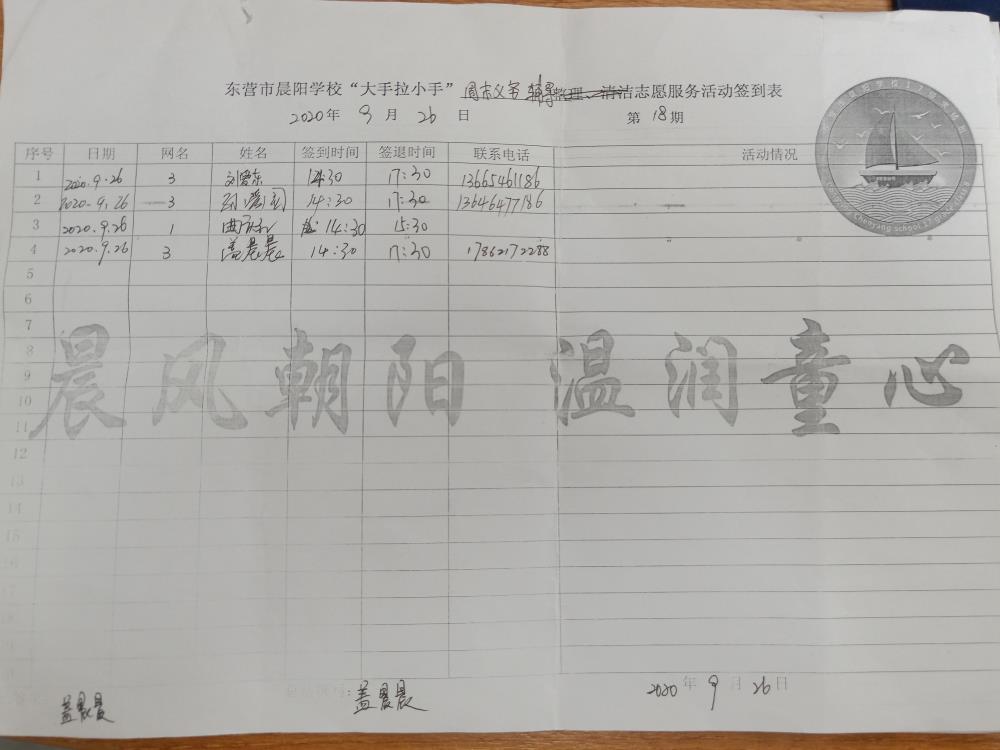 东营市晨阳学校“大手拉小手”周末义务辅导整理、清洁志愿服务活动签到表
2020年 9 月 26 日 第 18期
序号 日期 网名 姓名 签到时间 签退时间 联系电话 活动情况
1 2020.9.26 3 刘曾东 14:30 17:30 13665461186
2 2020.9.26 3 14:30 17:30 13646477186
3 2020.9.26 1 14:30 15:30
4 2020.9.26 3 盖晨晨 14:30 17:30 17862172288
5
6
7
8
9
10
11
12
13
14
15
16
17
晨风朝阳 温润童心
盖晨晨 盖晨晨 2020年 9 月 26日